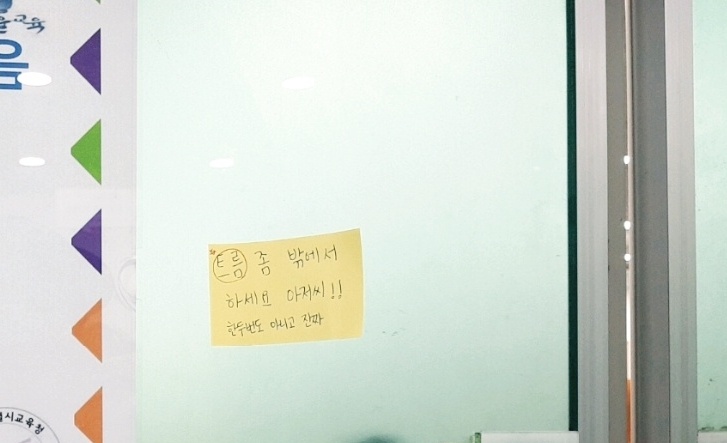 교육
음
트름 좀 밖에서
하세요 아저씨!!
한두번도 아니고 진짜
시교육청